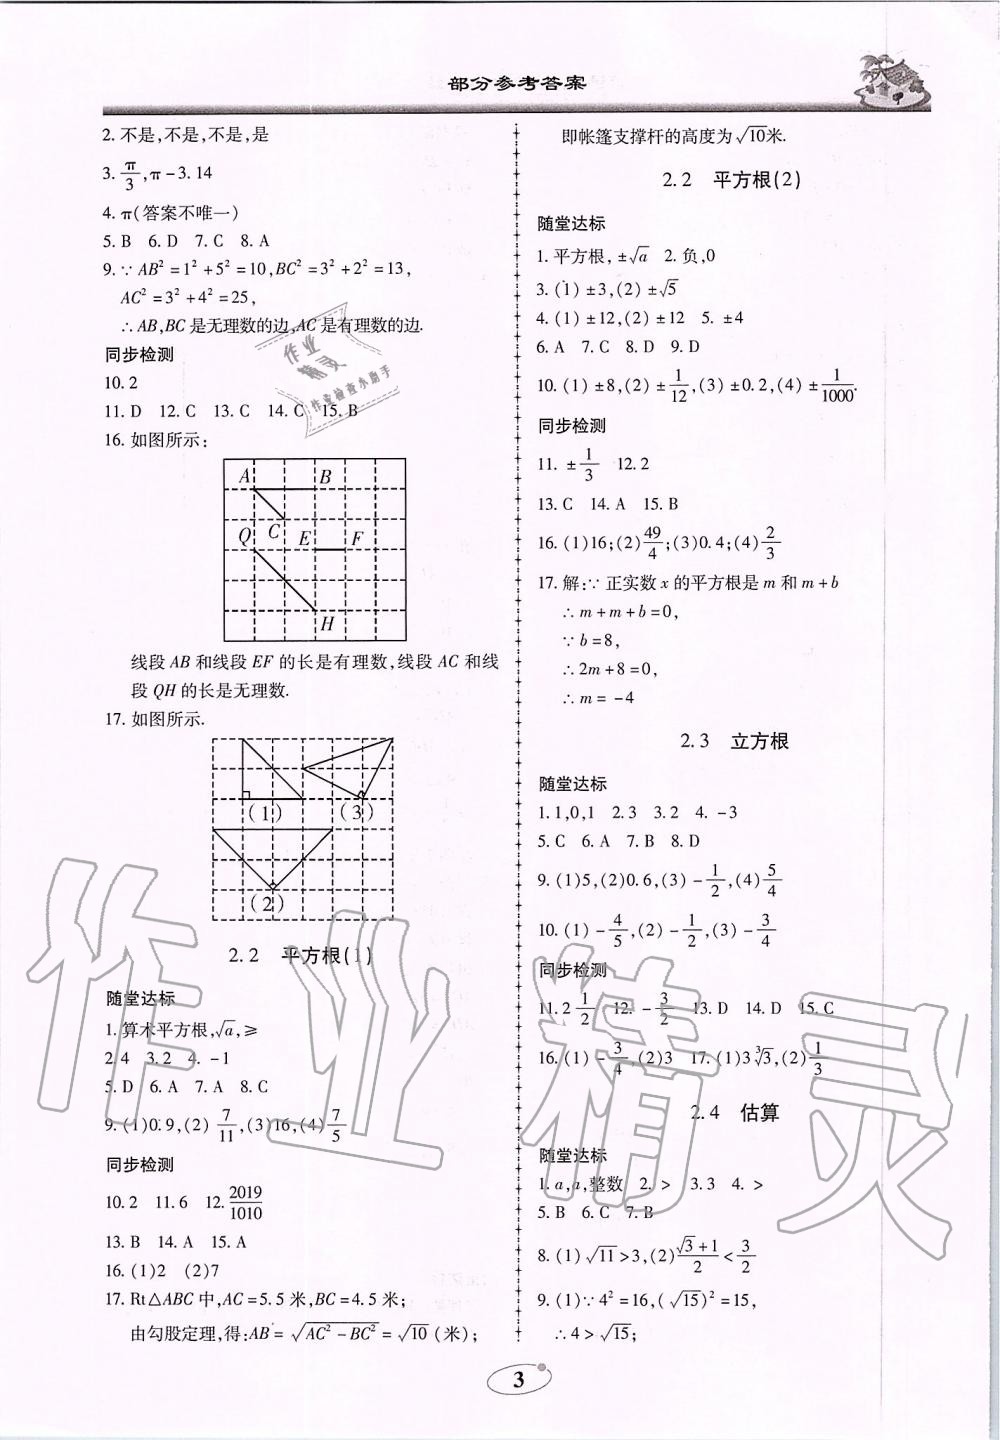 部分参考答案
2. 不是,不是,不是,是
3. π/3,π-3.14
4. π(答案不唯一)
5. B 6. D 7. C 8. A
9. ∵ AB²=1²+5²=10,BC²=3²+2²=13,
AC²=3²+4²=25,
∴ AB,BC 是无理数的边,AC 是有理数的边.
同步检测
10. 2
11. D 12. C 13. C 14. C 15. B
16. 如图所示:
A B
Q C E F
H
线段 AB 和线段 EF 的长是有理数,线段 AC 和线
段 QH 的长是无理数.
17. 如图所示.
(1) (3)
(2)
2.2 平方根(1)
随堂达标
1. 算术平方根,√a,≥
2. 4 3. 2 4. -1
5. D 6. A 7. A 8. C
9. (1)0.9,(2) 7/11,(3)16,(4)7/5
同步检测
10. 2 11. 6 12. 2019/1010
13. B 14. A 15. A
16. (1)2 (2)7
17. Rt△ABC 中,AC=5.5 米,BC=4.5 米;
由勾股定理,得:AB=√(AC²-BC²)=√10 (米);
即帐篷支撑杆的高度为√10米.
2.2 平方根(2)
随堂达标
1. 平方根, ±√a 2. 负,0
3. (1) ±3,(2) ±√5
4. (1) ±12,(2) ±12 5. ±4
6. A 7. C 8. D 9. D
10. (1) ±8,(2) ±1/12,(3) ±0.2,(4) ±1/1000.
同步检测
11. ±1/3 12. 2
13. C 14. A 15. B
16. (1)16;(2)49/4;(3)0.4;(4)2/3
17. 解:∵ 正实数 x 的平方根是 m 和 m+b
∴ m+m+b=0,
∵ b=8,
∴ 2m+8=0,
∴ m= -4
2.3 立方根
随堂达标
1. 1,0,1 2. 3 3. 2 4. -3
5. C 6. A 7. B 8. D
9. (1)5,(2)0.6,(3) -1/2,(4)5/4
10. (1) -4/5,(2) -1/2,(3) -3/4
同步检测
11. 2 1/2 12. -3/2 13. D 14. D 15. C
16. (1) -3/4,(2)3 17. (1)3∛3,(2)1/3
2.4 估算
随堂达标
1. a,a,整数 2. > 3. 3 4. >
5. B 6. C 7. B
8. (1) √11>3,(2)(√3+1)/2<3/2
9. (1)∵ 4²=16,(√15)²=15,
∴ 4>√15;
3
作业
精灵
作业检查小助手
作业精灵